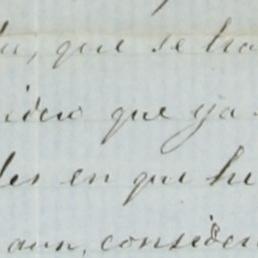 que se ha
que ya
en que he
aun, consider